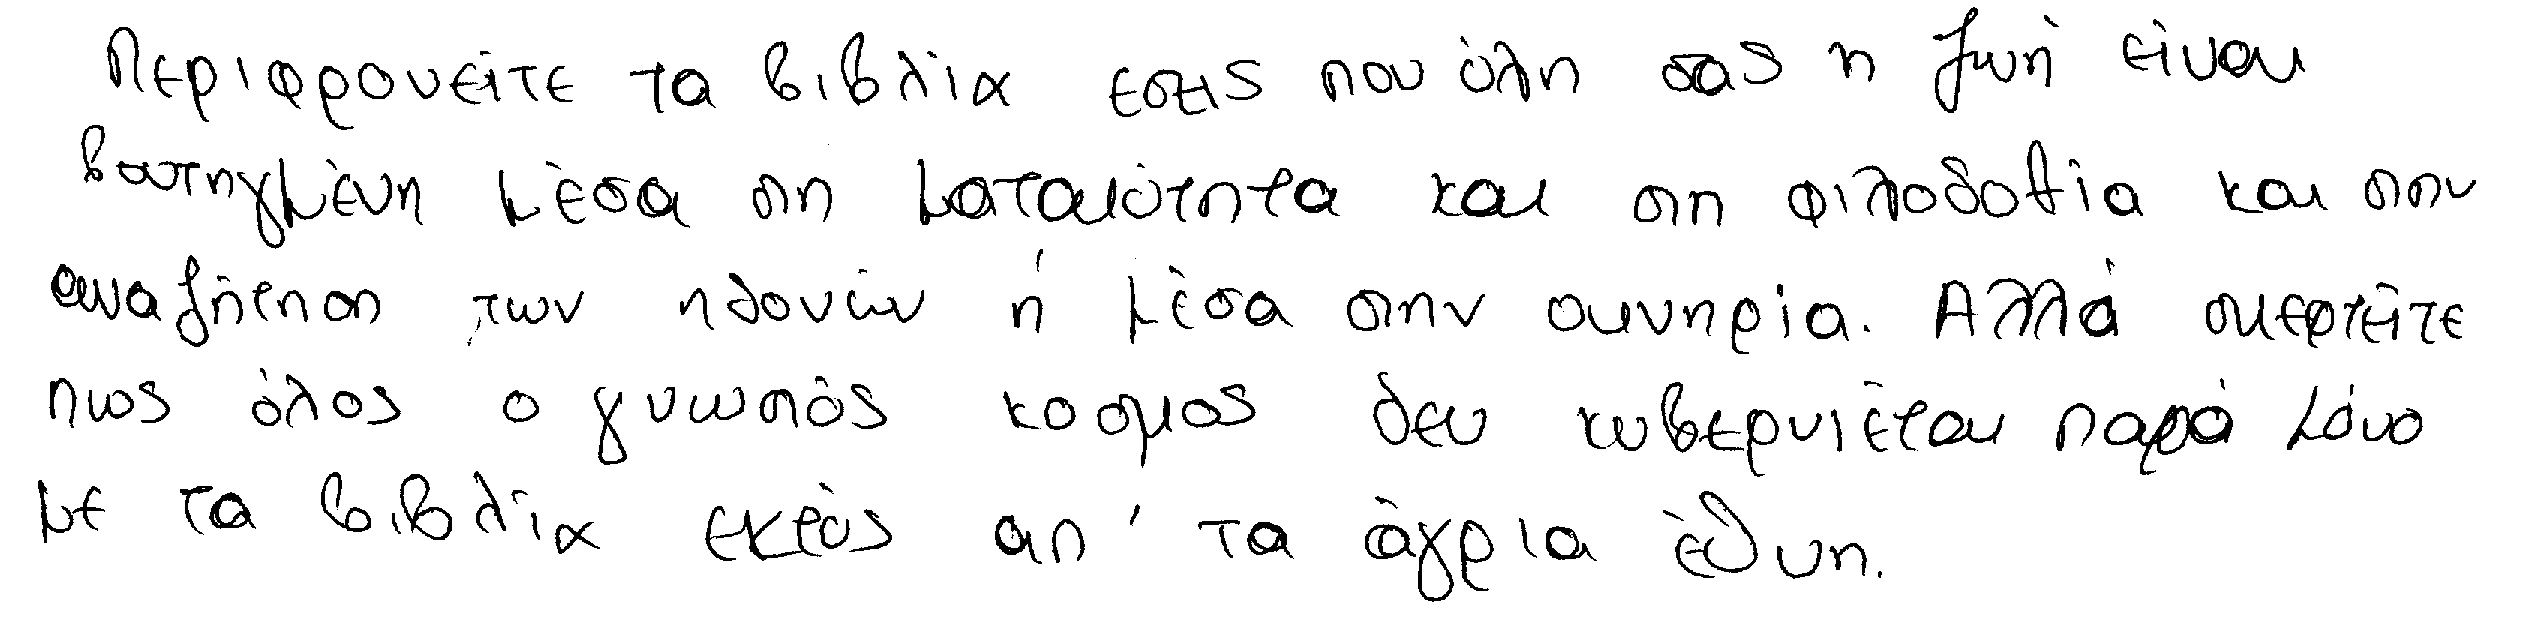 Περιφρονείτε τα βιβλία εσείς που όλη σας η ζωή είναι
βουτηγμένη μέσα στη ματαιότητα και στη φιλοδοξία και στην
αναζήτηση των ηδονών ή μέσα στην οκνηρία. Αλλά σκεφτείτε
πως όλος ο γνωστός κοσμος δεν κυβερνιέται παρά μόνο
με τα βιβλία εκτός απ' τα άγρια έθνη.